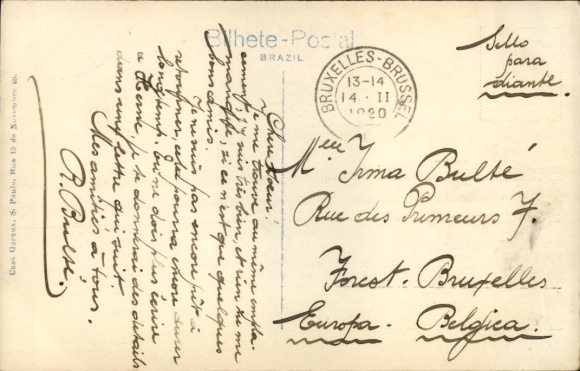 Bilhete-Postal
BRAZIL
BRUXELLES-BRUSSEL
13-14
14 · II
1920
Sello
para
diante.
Melle Irma Bulté
Rue des Primeurs 7.
Forest-Bruxelles
Europa. Belgica.
Chère Soeur!
Je me trouve au même empla-
cement, j'y suis très bien, et rien ne me
manque, si ce n'est que quelques
bons amis.
Je ne suis pas encore prêt à
retourner, cela pourra encore durer
longtemps. Tu ne dois plus écrire
à je te donnerai des détails
dans une lettre qui suit.
Mes amitiés à tous.
R. Bulté.
Casa Garraux, S. Paulo, Rua 15 de Novembro 40.